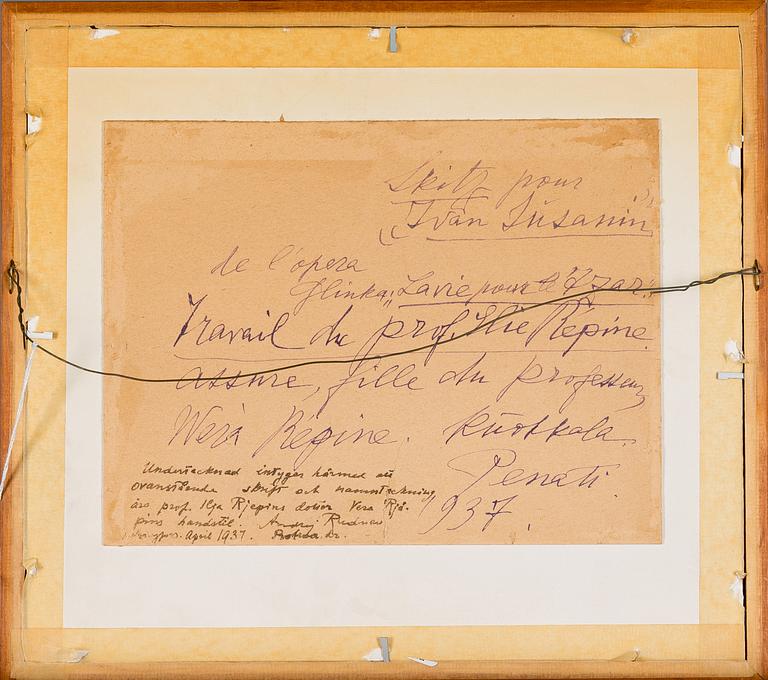 Skitz pour
(Ivan Susanin
de l'opera
Glinka "La vie pour le Tzar."
Travail du prof. Ilie Répine
assure, fille du professeur,
Wéra Répine. Kuokkala.
Penati.
937.
Undertecknad intygar härmed att
ovanstående skrift och namnteckning
äro prof. Ilja Rjepins dotter Vera Rjé-
pins handstil. Andrej Rudnev
april 1937.